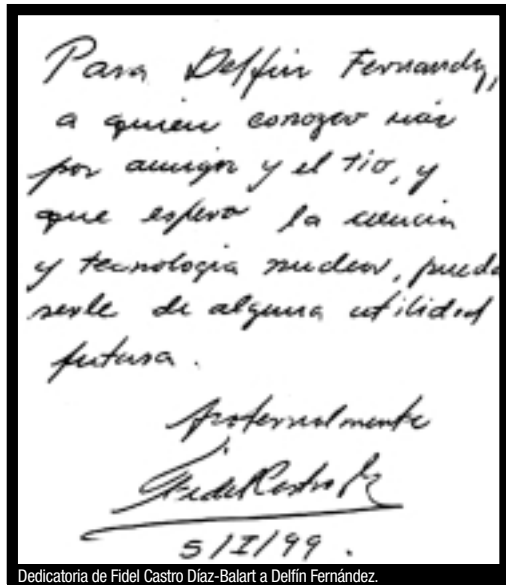 Para Delfín Fernandez,
a quien conozco más
por amigos y el tío, y
que espero la ciencia
y tecnología nuclear, pueda
serle de alguna utilidad
futura.
fraternalmente
Fidel Castro
5/I/99.
Dedicatoria de Fidel Castro Díaz-Balart a Delfín Fernández.